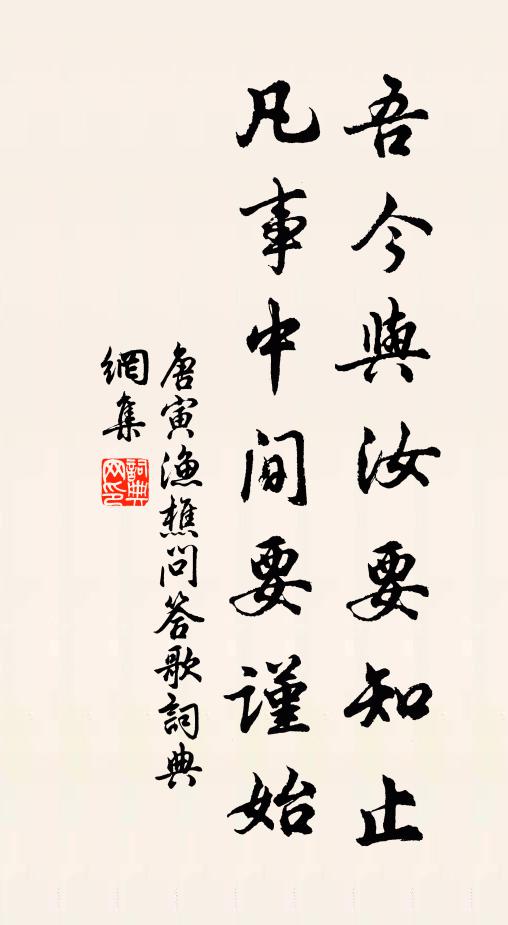 吾今與汝要知止
凡事中间要謹始
唐寅漁樵問答歌詞典
網集
詞典
网印